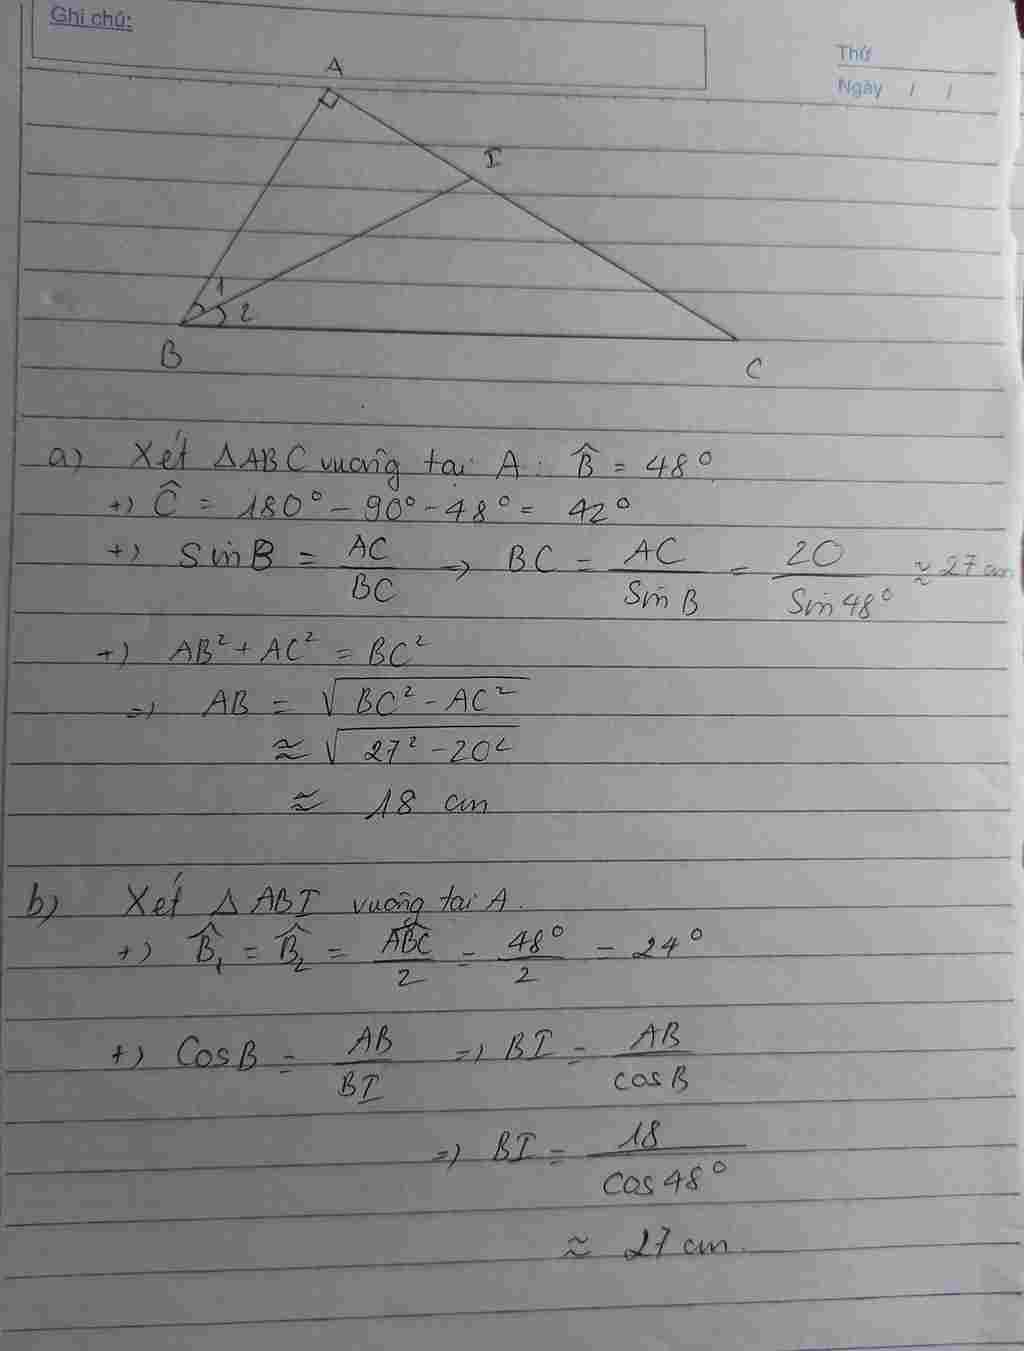 Ghi chú:
Thứ
Ngày / /
A
I
1
2
B
C
a) Xét ΔABC vuông tại A: B̂ = 48°
+) Ĉ = 180° - 90° - 48° = 42°
+) Sin B = AC/BC => BC = AC/Sin B = 20/Sin 48° ≈ 27 cm
+) AB² + AC² = BC²
=> AB = √(BC² - AC²)
≈ √(27² - 20²)
≈ 18 cm
b) Xét ΔABI vuông tại A.
+) B̂₁ = B̂₂ = ABĈ/2 = 48°/2 = 24°
+) Cos B = AB/BI => BI = AB/cos B
=> BI = 18/cos 48°
≈ 27 cm.